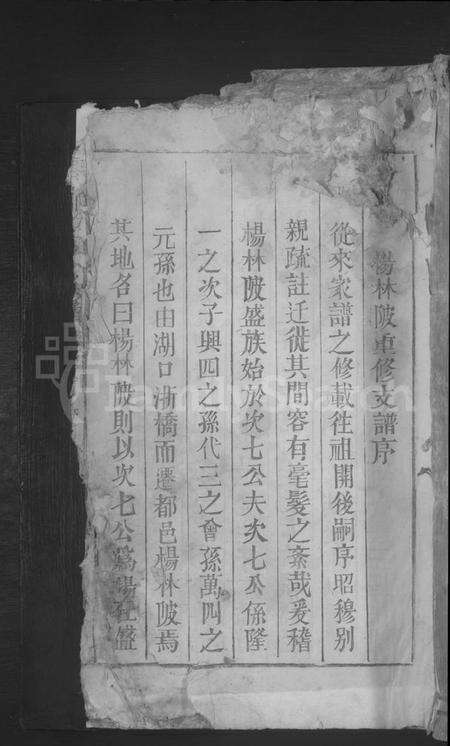 楊林陂重修支譜序
從來家譜之修載徃祖開後嗣序昭穆别
親疏註迁徙其間容有毫髮之紊哉爰稽
楊林陂盛族始於次七公夫次七公係隆
一之次子興四之孫代三之曾孫萬四之
元孫也由湖口浙橋而遷都邑楊林陂焉
其地名曰楊林陂則以次七公爲楊社盛